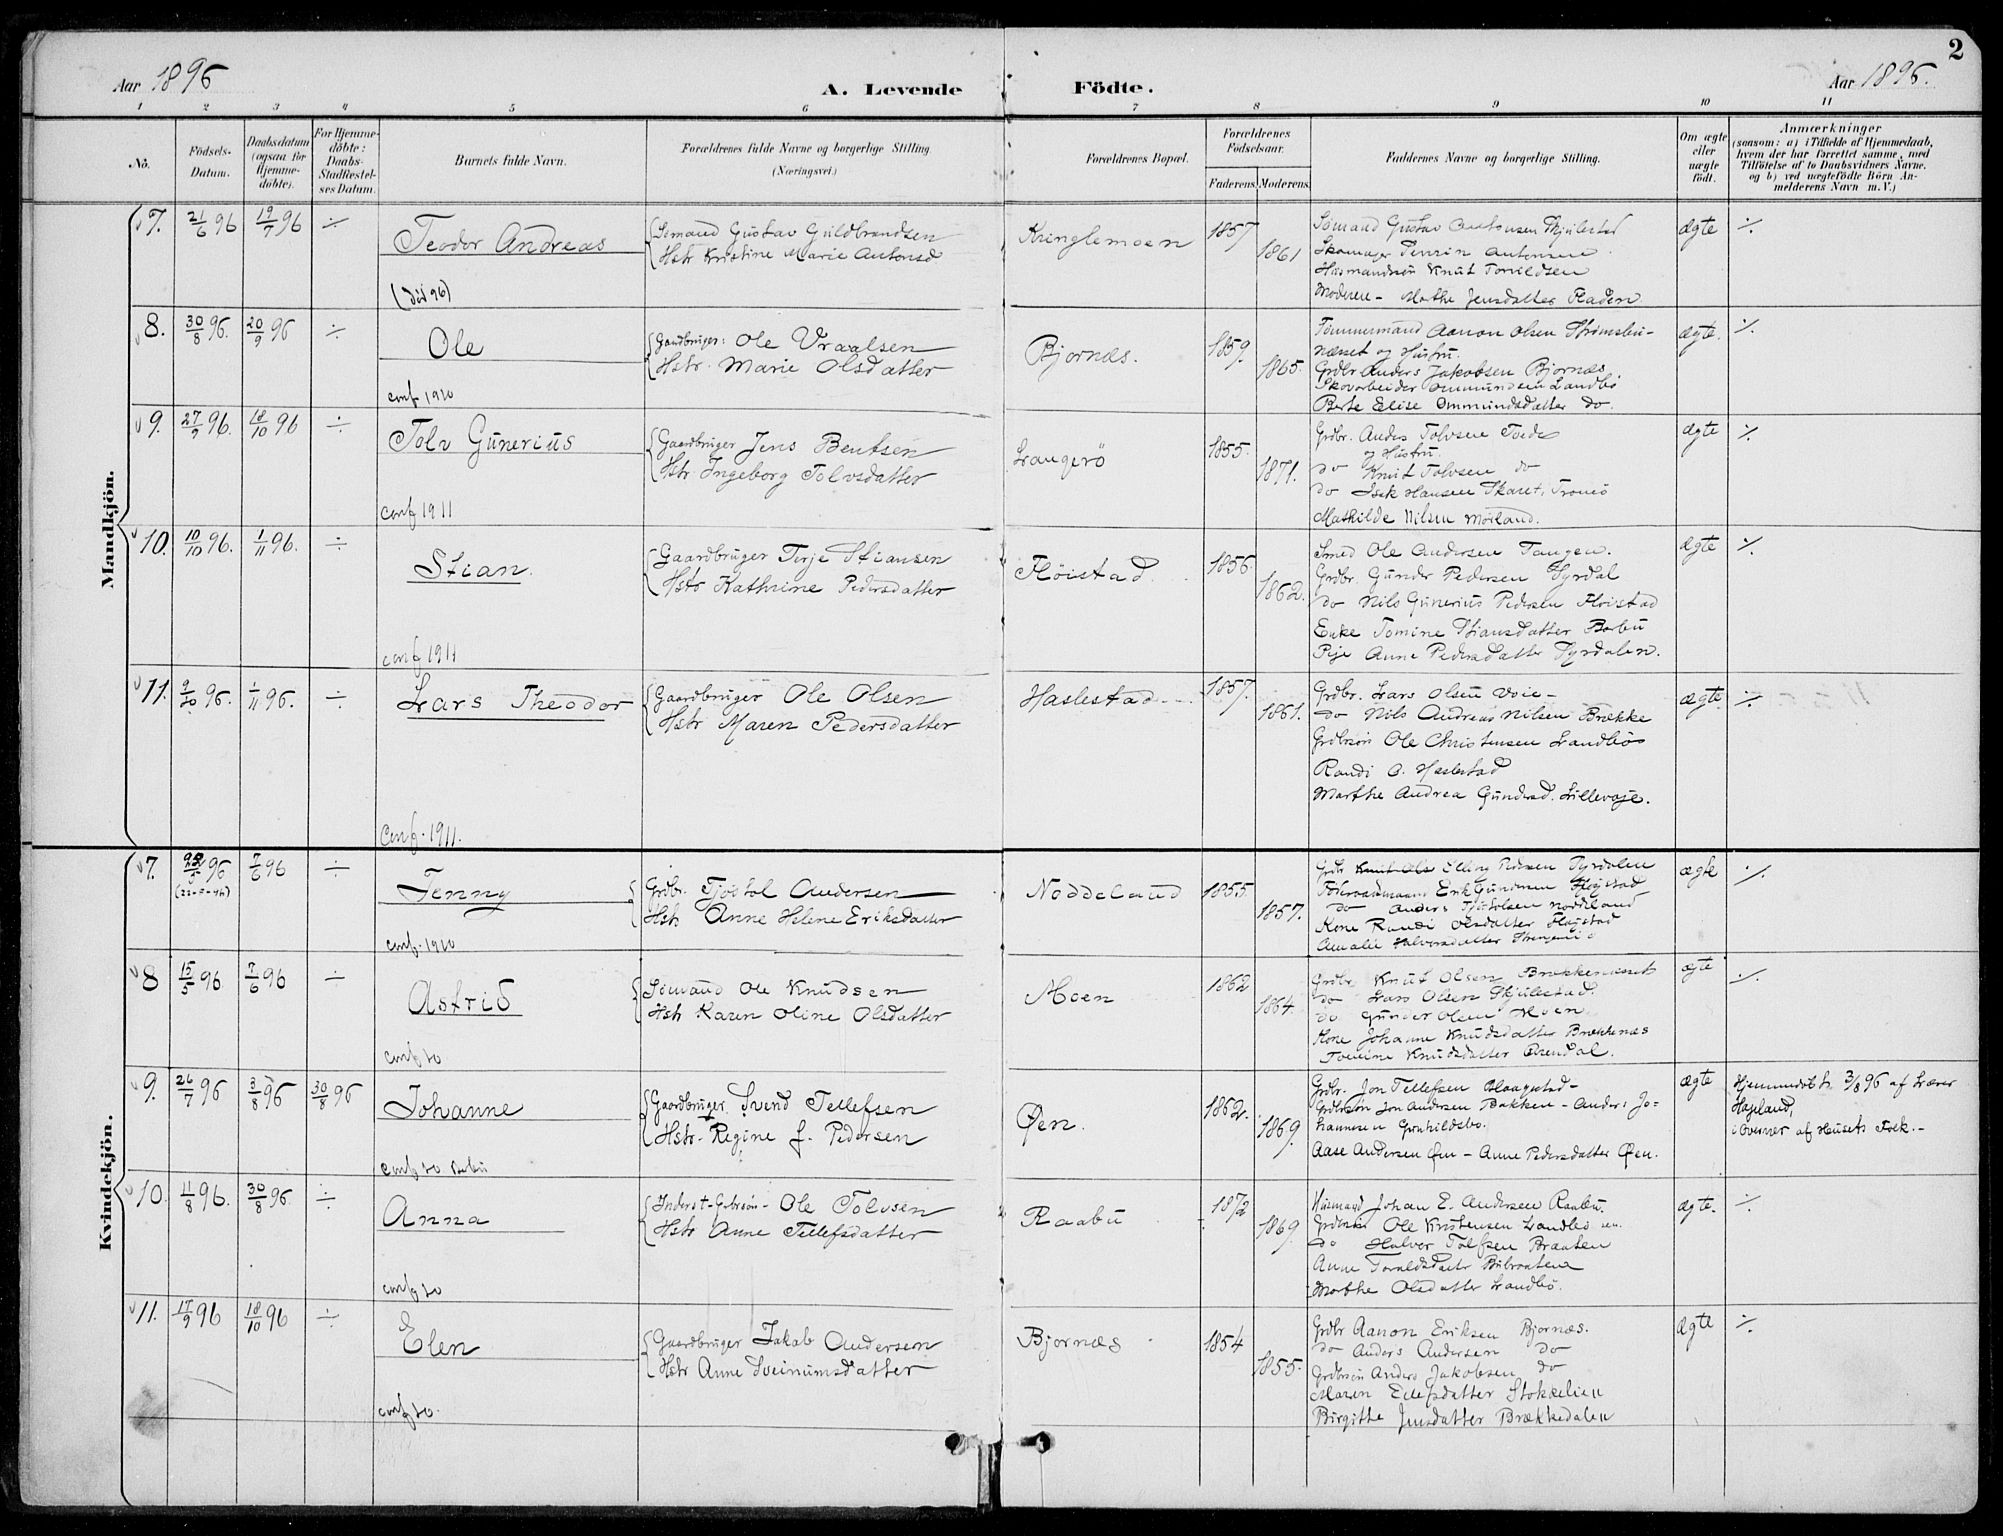 2
Aar 1896
A. Levende Födte.
Aar 1896.
1 2 3 4 5 6 7 8 9 10 11
Nô.
Födsels-Datum.
Daabsdatum (ogsaa for Hjemme-döbte).
For Hjemme-döbte: Daabs-Stadfæstel-ses Datum.
Barnets fulde Navn.
Forældrenes fulde Navne og borgerlige Stilling. (Næringsvei.)
Forældrenes Bopæl.
Forældrenes Födselsaar.
Faderens.
Moderens.
Faddernes Navne og borgerlige Stilling.
Om ægte eller uægte födt.
Anmærkninger
(saasom: a) i Tilfælde af Hjemmedaab,
hvem der har forrettet samme, med
Tilföielse af to Daabsvidners Navne.
og b) ved uægtefödte Börn An-
melderens Navn m. V.)
Mandkjön.
7. 21/6 96 19/7 96 ÷ Teodor Andreas
(död 96)
Sömand Gustav Guldbrandsen
Hstr Kristine Marie Antonsd
Kringlemoen 1857 1861
Sømand Gustav Antonsen Skjulestad
Skomager Antonsen
Husmandssön Knut Torvildsen
Moderen - Marthe Jensdatter
ægte ÷
8. 30/8 96. 20/9 96 ÷ Ole
conf 1910
Gaardbruger: Ole Vraalsen
Hstr. Marie Olsdatter
Bjornæs. 1859. 1865.
Tömmermand Aanon Olsen Strömsbu-
næsset og Hustru.
Grdbr Anders Jakobsen Bjornæs.
Skovarbeider Ommundsen Landbö
Berte Elise Ommundsdatter do.
ægte. ÷
9. 27/9 96. 18/10 96 ÷ Tolv Gunerius
conf 1911
Gaardbruger Jens Bentsen
Hstr Ingeborg Tolvsdatter
Langerö 1855. 1871.
Grdbr. Anders Tolvsen
og Hustru.
do Knut Tolvsen do
do Isak Hansen Skaret, Tromö
Mathilde Nilsen Mörland.
ægte ÷
10. 10/10 96. 1/11 96. ÷ Stian.
conf 1911
Gaardbruger Terje Stiansen
Hstr Kathrine Pedersdatter
Flöistad. 1856. 1862.
Smed Ole Andersen Tangen.
Grdbr. Gunder Pedersen Fyrdal
do Nils Gunerius Pedersen Flöistad
Enke Tomine Stiansdatter Barbu
Pige Anne Pedersdatter Fyrdalen.
ægte ÷
11. 9/10 96. 1/11 96. ÷ Lars Theodor
Conf. 1911.
Gaardbruger Ole Olsen
Hstr Maren Pedersdatter
Haslestad 1857. 1861.
Grdbr. Lars Olsen Voie -
do Nils Andreas Nilsen Brække
Grdbrsön Ole Christensen Landbö
Randi O. Haslestad
Marthe Andrea Gundersd. Lillevoje.
ægte ÷
Kvindekjön.
7. 22/5 96 (22-5-96) 7/6 96 ÷ Jenny
conf. 1910
Grdbr. Tjöstol Andersen
Hstr Anne Helene Eriksdatter
Noddeland 1855. 1857.
Grdbr Elling Pedersen Fyrdalen
Erik Gundersen Flöistad
do Anders Tjöstolsen Noddeland
Kone Randi Olsdatter Flöjstad
Amalie Halvorsdatter
ægte ÷
8 15/5 96 7/6 96 ÷ Astrid
conf 10
Sömand Ole Knudsen
Hstr Karen Oline Olsdatter
Moen 1862 1864.
Grdbr Knut Olsen Brækkenesset
do Lars Olsen Skjulestad.
do Gunder Olsen Moen
Kone Johanne Knudsdatter Brækkenæs
Knudsdatter Arendal.
ægte ÷
9. 26/7 96 3/8 96 30/8 96 Johanne
conf 10
Gaardbruger Svend Tellefsen
Hstr. Regine f. Pedersen
Øen. 1862. 1869.
Grdbr. Jon Tellefsen Haugstad -
Grdbrsön Jon Andersen Bakken - Anders Jo=
hannesen Gunhildsbo.
Aase Andersen Øen - Anne Pedersdatter Øen.
ægte
Hjemmedöbt 3/8 96 af Lærer
Hageland,
i Overvær af Husets Folk. -
10. 11/8 96. 30/8 96. ÷ Anna
conf 10
Inderst - Gdbrsön - Ole Tolvsen
Hstr Anne Tellefsdatter
Raabu 1872 1869.
Husmand Johan E. Andersen Raabu.
Ole Kristensen Landbö
do Halvor Tolfsen Braaten
Anne
Marthe Olsdatter Landbö.
ægte. ÷
11. 17/9 96 18/10 96 ÷ Elen
conf 10.
Gaardbruger Jakob Andersen
Hstr Anne Sveinumsdatter
Bjornæs 1854 1855.
Grdbr Aanon Eriksen Bjornæs.
do Anders Andersen do
Grdbrsön Anders Jakobsen do
Maren Ellefsdatter Stokkelien
Birgithe Jensdatter Brækkedalen
ægte ÷